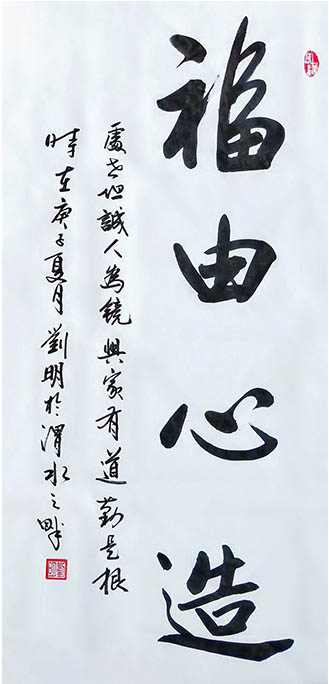 福由心造
處世坦誠人為鏡興家有道勤是根
時在庚子夏月劉明於渭水之畔